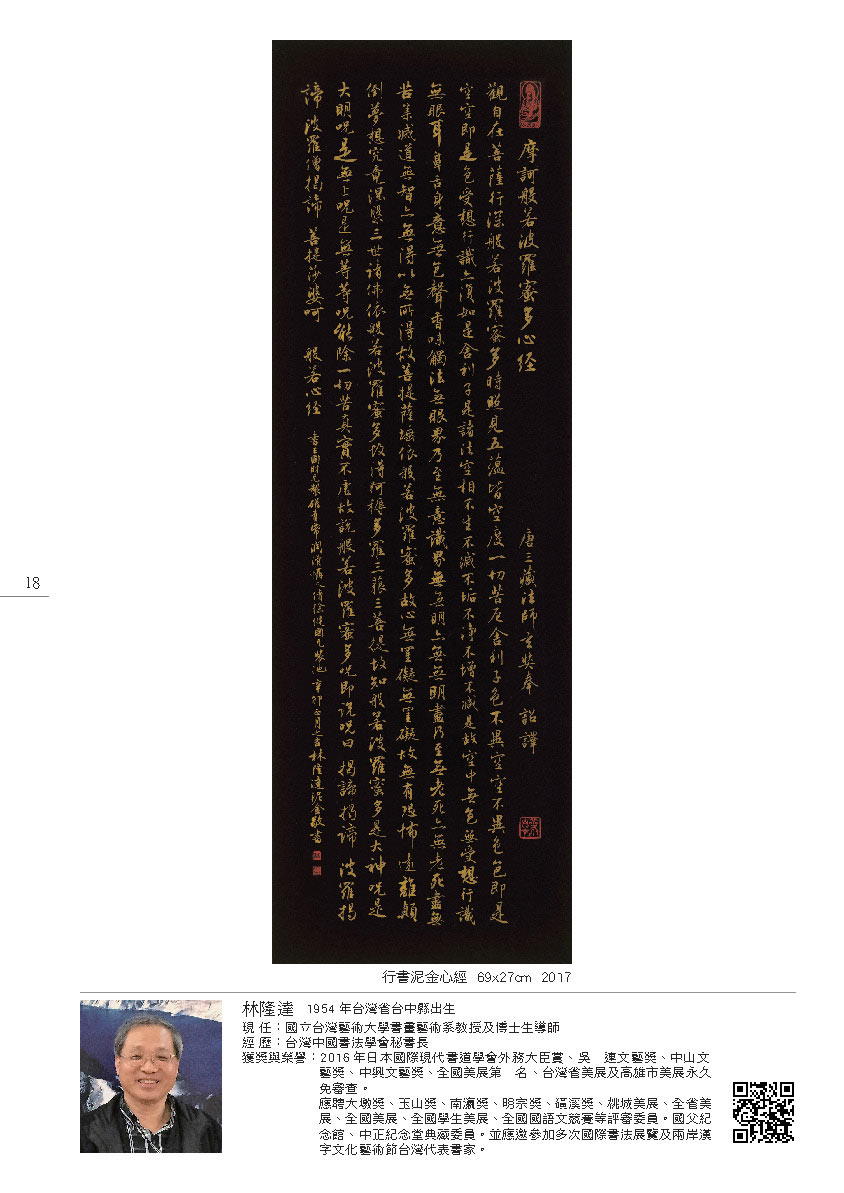 摩訶般若波羅蜜多心経 唐三藏法師玄奘奉 詔譯
觀自在菩薩行深般若波羅蜜多時照見五蘊皆空度一切苦厄舍利子色不異空空不異色色即是
空空即是色受想行識亦復如是舍利子是諸法空相不生不滅不垢不淨不增不減是故空中無色無受想行識
無眼耳鼻舌身意無色聲香味觸法無眼界乃至無意識界無無明亦無無明盡乃至無老死亦無老死盡無
苦集滅道無智亦無得以無所得故菩提薩埵依般若波羅蜜多故心無罣礙無罣礙故無有恐怖遠離顛
倒夢想究竟涅槃三世諸佛依般若波羅蜜多故得阿耨多羅三藐三菩提故知般若波羅蜜多是大神咒是
大明咒是無上咒是無等等咒能除一切苦真實不虛故說般若波羅蜜多咒即說咒曰 揭諦揭諦 波羅揭
諦 波羅僧揭諦 菩提莎婆呵 般若心経 辛卯正月 林隆達泥金敬書
18
行書泥金心經 69x27cm 2017
林隆達 1954 年台灣省台中縣出生
現 任：國立台灣藝術大學書畫藝術系教授及博士生導師
經 歷：台灣中國書法學會秘書長
獲獎與榮譽：2016 年日本國際現代書道學會外務大臣賞、吳 連文藝獎、中山文
藝獎、中興文藝獎、全國美展第 名、台灣省美展及高雄市美展永久
免審查。
應聘大墩獎、玉山獎、南瀛獎、明宗獎、磺溪獎、桃城美展、全省美
展、全國美展、全國學生美展、全國國語文競賽等評審委員。國父紀
念館、中正紀念堂典藏委員。並應邀參加多次國際書法展覽及兩岸漢
字文化藝術節台灣代表書家。